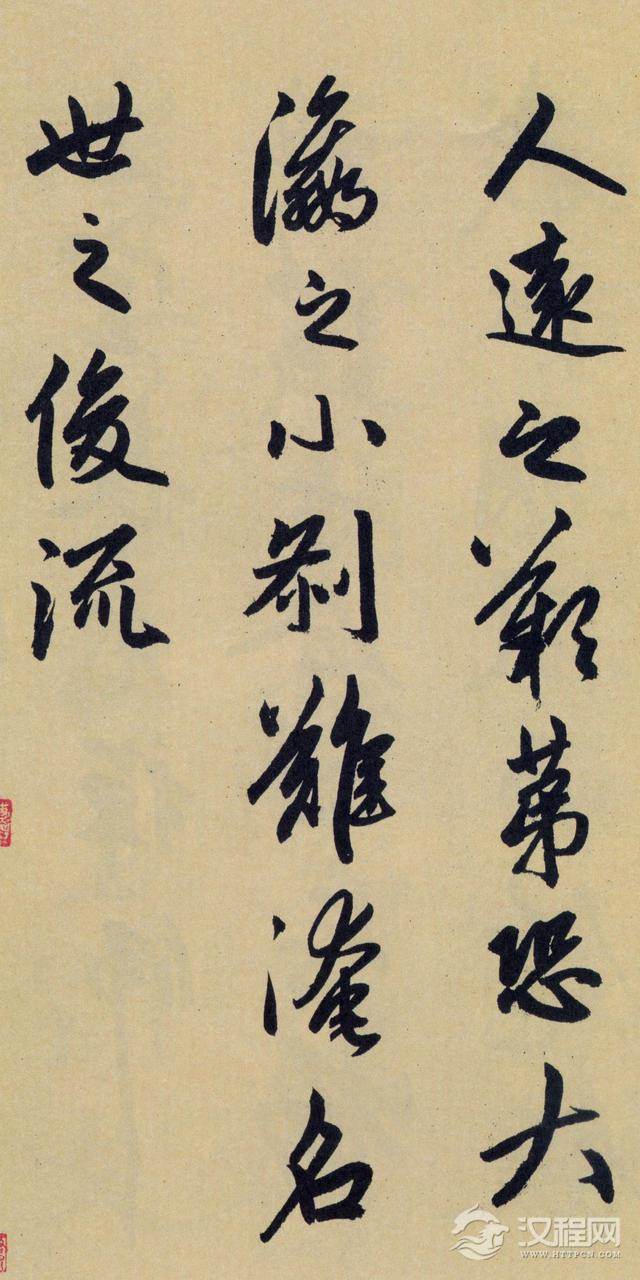 人遠之歎苐恐大
瀛之小刹難淹名
世之俊流
汉程网
WWW.HTTPCN.COM